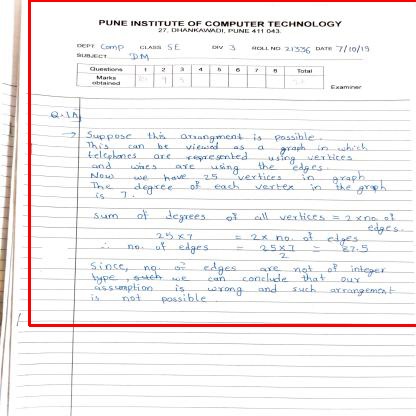 PUNE INSTITUTE OF COMPUTER TECHNOLOGY
27, DHANKAWADI, PUNE 411 043.
DEPT. Comp CLASS SE DIV 3 ROLL NO. 21336 DATE 7/10/19
SUBJECT DM
Questions 1 2 3 4 5 6 7 8 Total
Marks obtained
Examiner
Q.1A)
→ Suppose this arrangment is possible.
This can be viewed as a graph in which
telephones are represented using vertices
and wires are using the edges.
Now we have 25 vertices in graph
The degree of each vertex in the graph
is 7.
Sum of degrees of all vertices = 2 x no. of
edges.
25 x 7 = 2 x no. of edges
∴ no. of edges = 25x7/2 = 87.5
Since, no. of edges are not of integer
type, such we can conclude that our
assumption is wrong and such arrangement
is not possible.